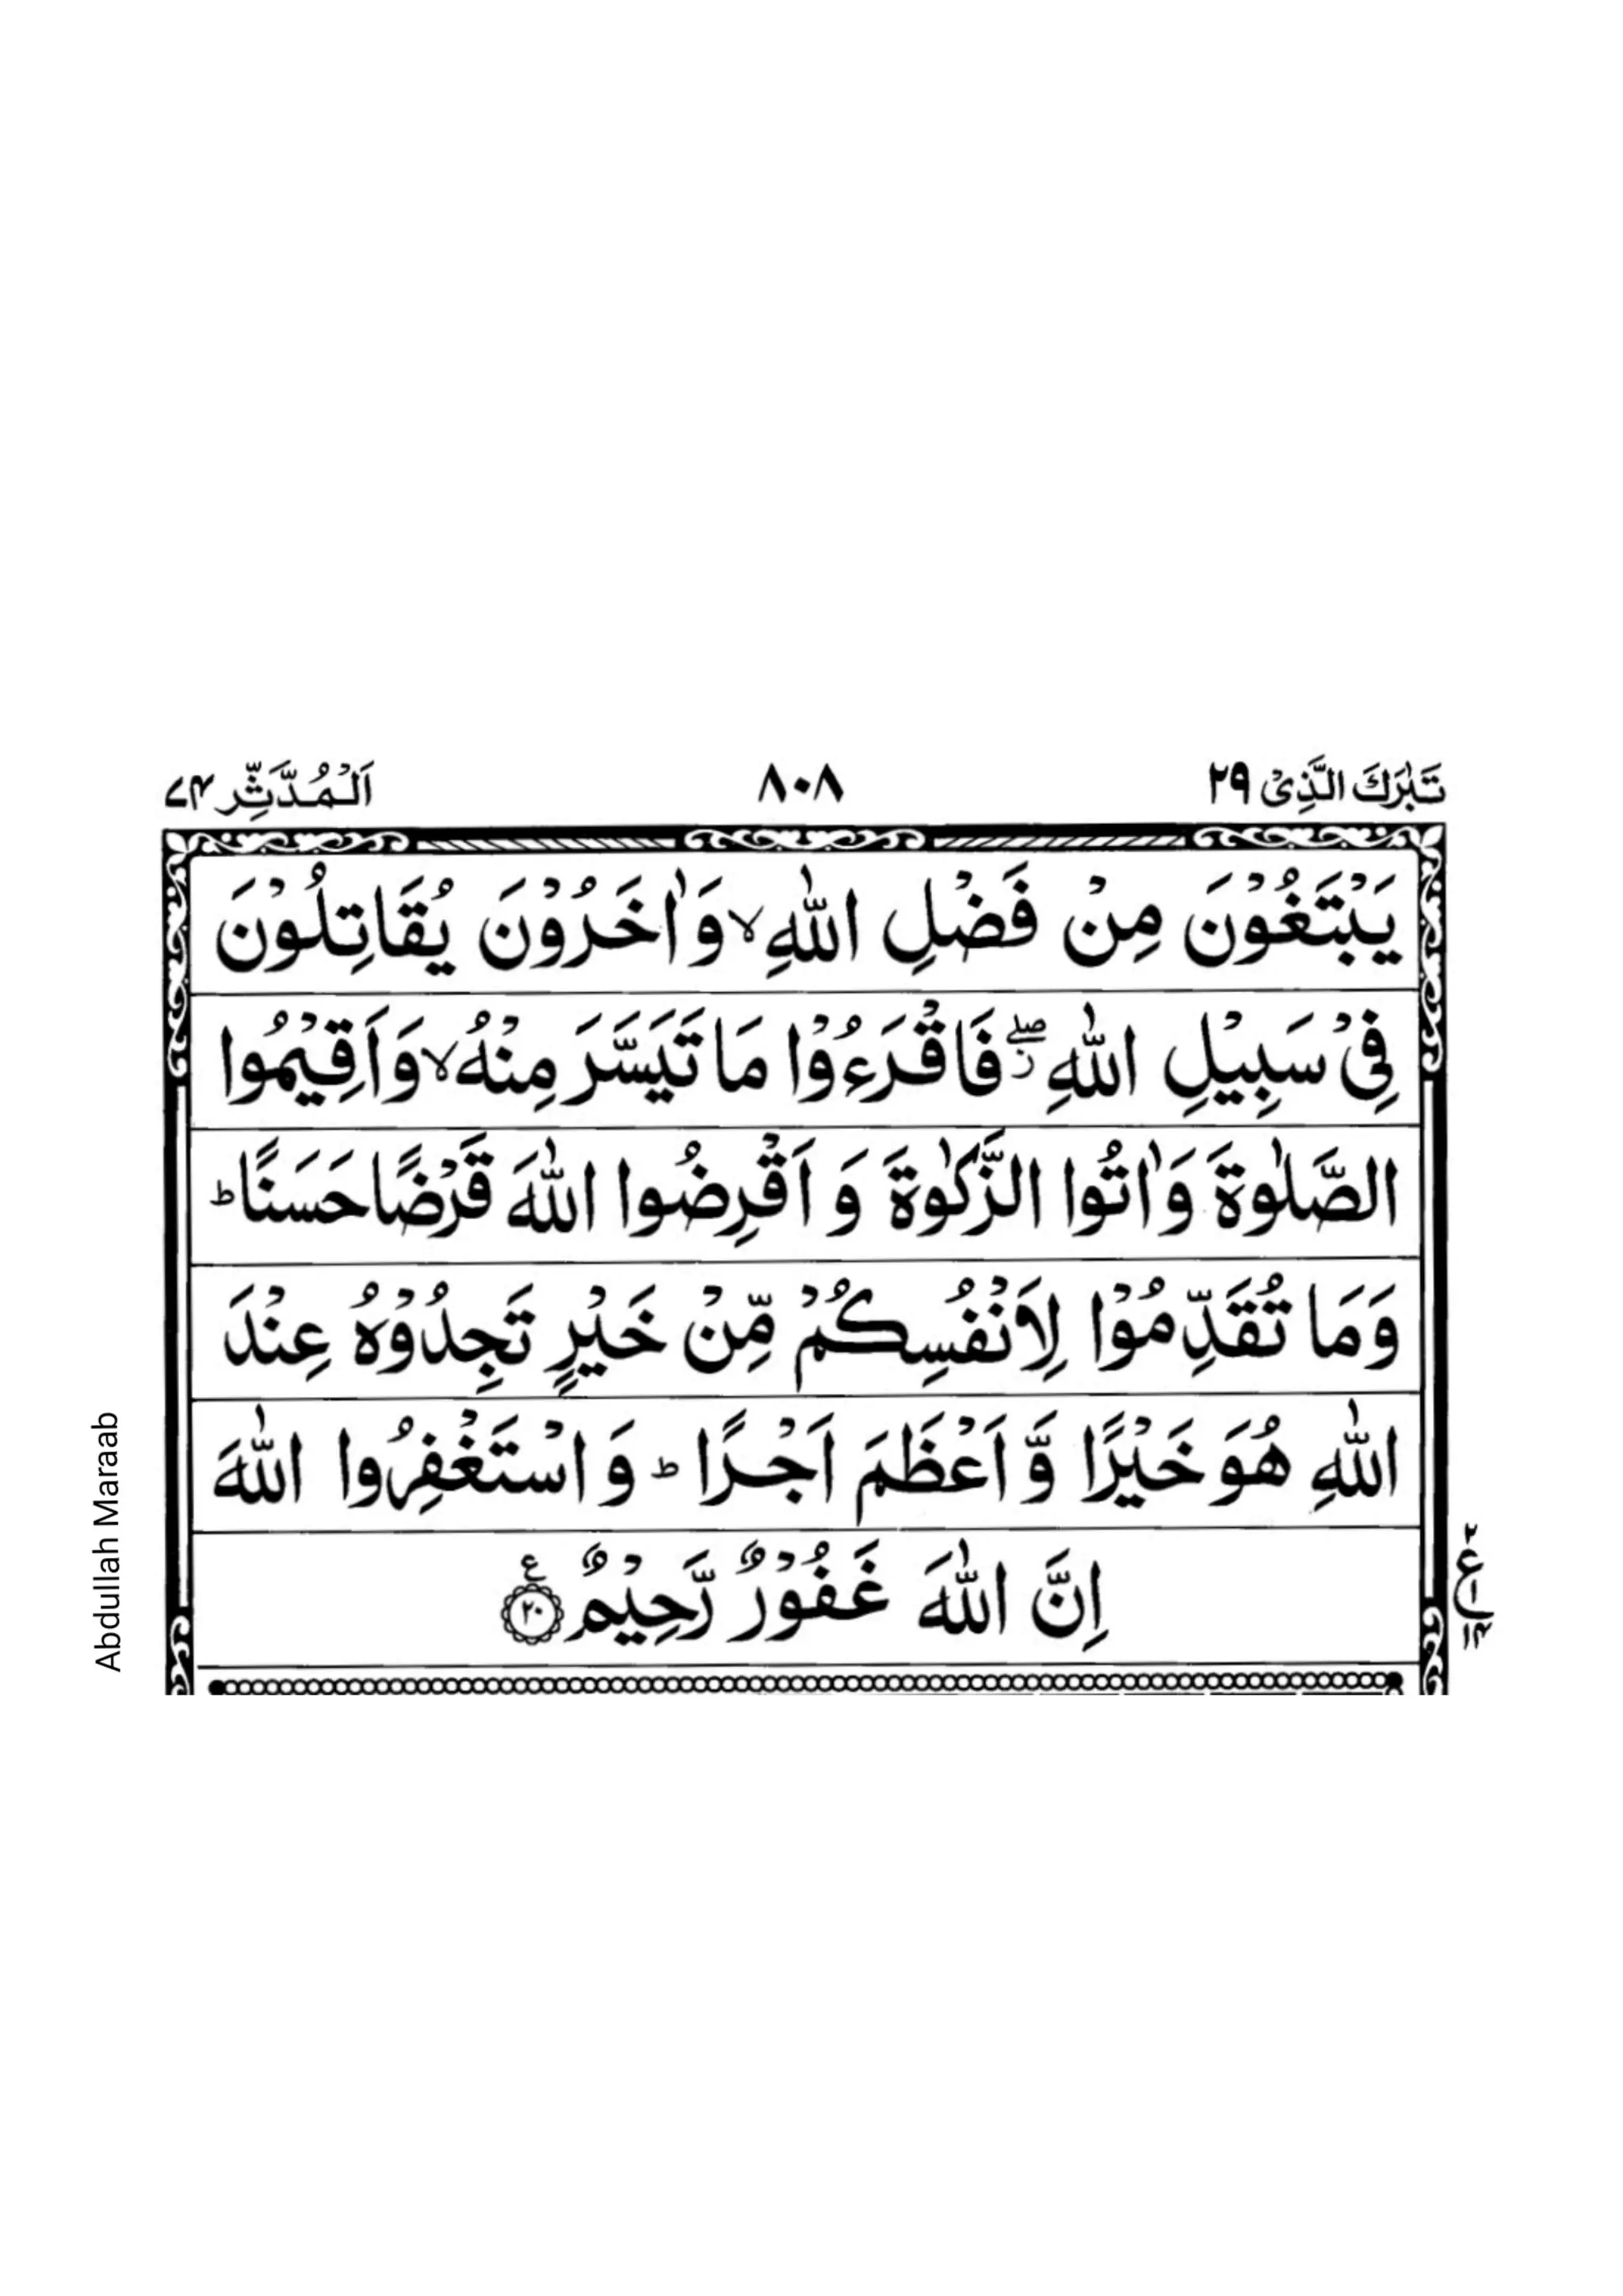 تَبٰرَكَ الَّذِىْ ۲۹
۸۰۸
اَلْمُدَّثِّر ۷۴
يَبْتَغُوْنَ مِنْ فَضْلِ اللّٰهِ ۙ وَاٰخَرُوْنَ يُقَاتِلُوْنَ
فِىْ سَبِيْلِ اللّٰهِ ۖز فَاقْرَءُوْا مَا تَيَسَّرَ مِنْهُ ۙ وَاَقِيْمُوا
الصَّلٰوةَ وَاٰتُوا الزَّكٰوةَ وَ اَقْرِضُوا اللّٰهَ قَرْضًا حَسَنًا ؕ
وَمَا تُقَدِّمُوْا لِاَنْفُسِكُمْ مِّنْ خَيْرٍ تَجِدُوْهُ عِنْدَ
اللّٰهِ هُوَ خَيْرًا وَّ اَعْظَمَ اَجْرًا ؕ وَ اسْتَغْفِرُوا اللّٰهَ
اِنَّ اللّٰهَ غَفُوْرٌ رَّحِيْمٌ ۲۰ ع
۲ ع ۱ ۱۴
Abdullah Maraab